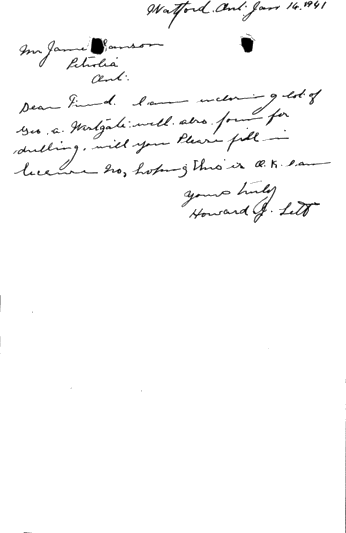 Watford. Ont. Jan 16. 1941
Mr Jame Samson
Petrolia
Ont.
Dear Friend. I am enclosing lot of
Geo. a. Westgate well. also. form for
drilling. will you Please fill in
licence No, hoping this is O.K. I am
yours truly
Howard J. Lett